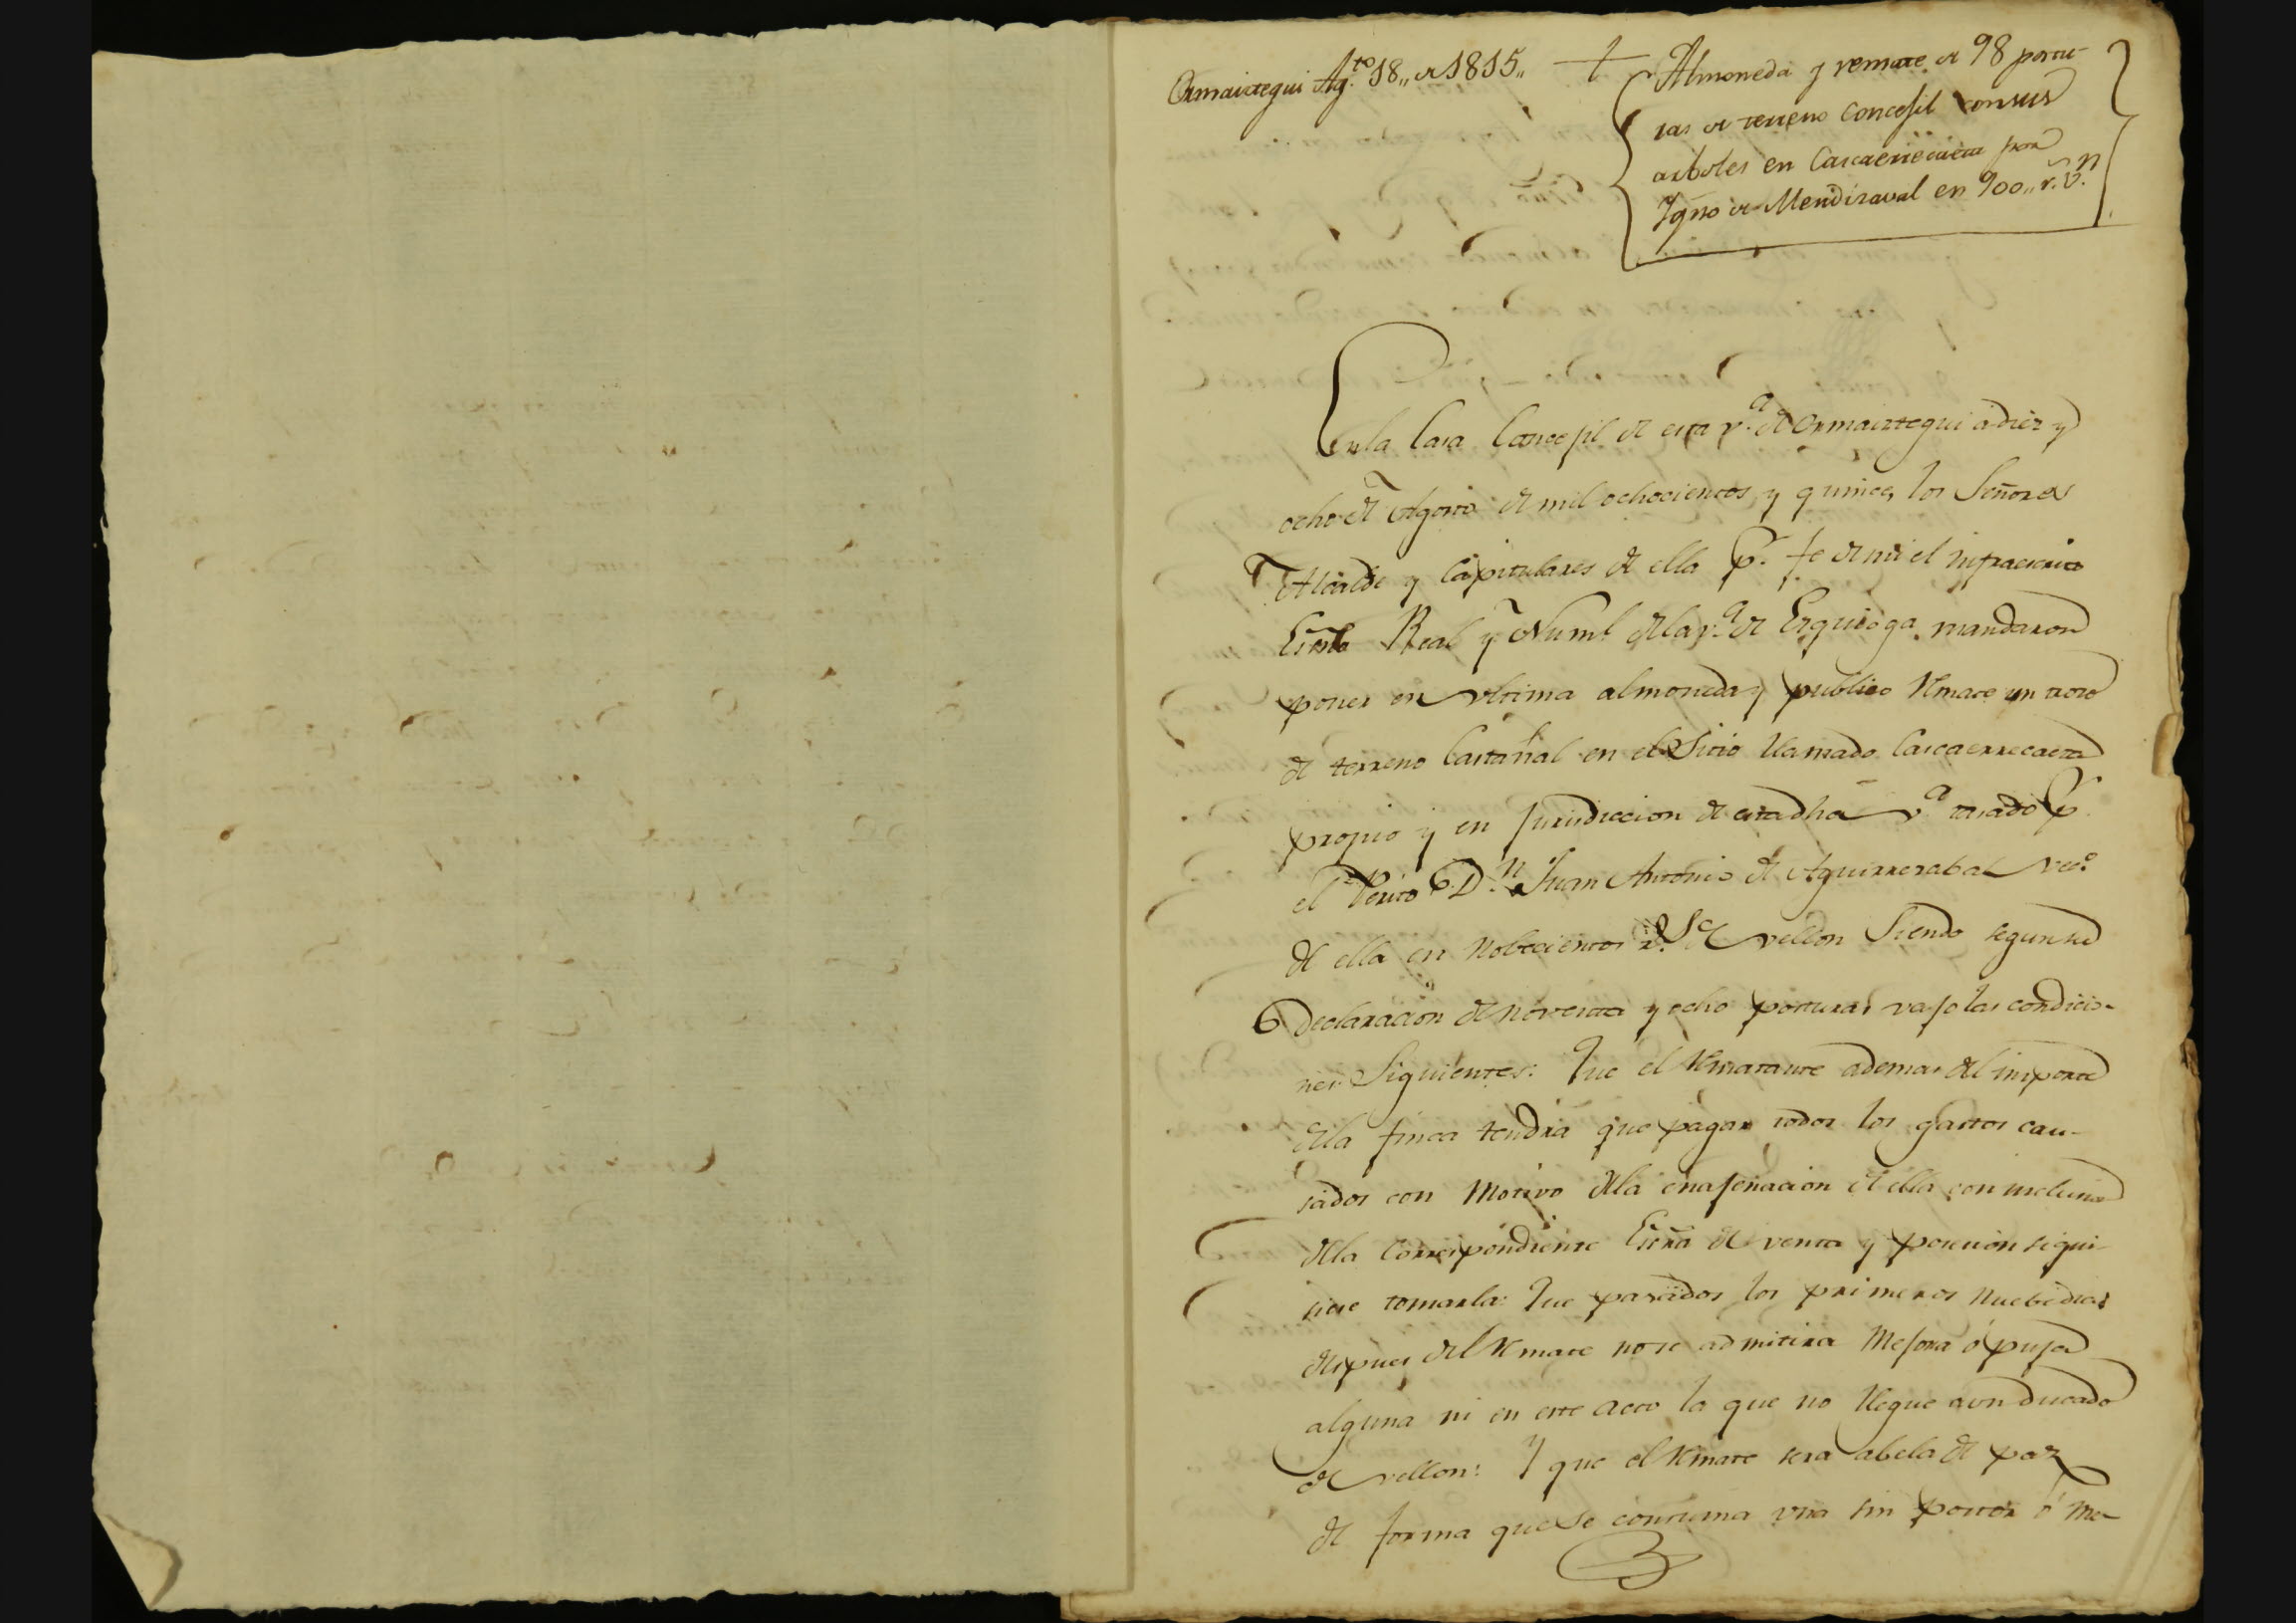 Ormaiztegui Ag.to 18,, de 1815,,
Almoneda y remate de 98 postu-
ras de terreno Concejil con sus
arboles en Cascaerrecaeta por
Ygno de Mendizaval en 900,, r.s v.n
En la Casa Concejil de esta v.a de Ormaiztegui a diez y
ocho de Agosto de mil ochocientos y quince, los Señores
Alcalde y Capitulares de ella p.r fe de mi el infraescrito
Essno Real y Numl. de la v.a de Ezquioga mandaron
poner en vltima almoneda y publico Remate un trozo
de terreno Castañal en el Sitio llamado Cascaerrecaeta
propio y en Jurisdiccion de esta dha v.a tasado p.r
el Perito D.n Juan Antonio de Aguirrezabal vec.o
de ella en Nobecientos r.s de vellon Siendo segun su
Declaracion de noventa y ocho posturas vajo las condicio-
nes Siguientes: Que el Rematante ademas del importe
de la finca tendra que pagar todos los gastos cau-
sados con Motivo de la enajenacion de ella con inclusion
de la Correspondiente Escra de venta y posesion si qui-
siere tomarla: Que pasados los primeros Nuebe dias
despues del Remate no se admitira Mejora ó puja
alguna ni en este acto la que no llegue a vn ducado
de vellon: Y que el Remate sera a bela de paz
de forma que se consuma vna sin postor ó me-